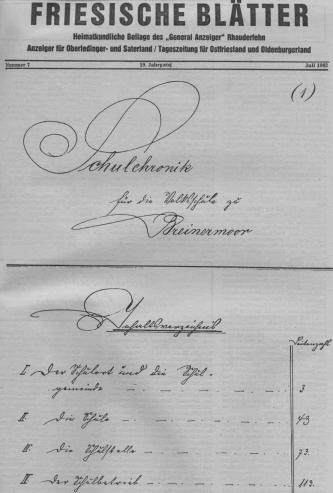 FRIESISCHE BLÄTTER
Heimatkundliche Beilage des „General Anzeiger" Rhauderfehn
Anzeiger für Oberledinger- und Saterland / Tageszeitung für Ostfriesland und Oldenburgerland
Nummer 7 19. Jahrgang Juli 1982
(1)
Schulchronik
für die Volksschule zu
Breinermoor
Inhaltsverzeichnis
Seitenzahl
I. Der Schulort und die Schul-
gemeinde 3
II. Die Schule 49
III. Die Schulstelle 73.
IV. Der Schulbetrieb 113.